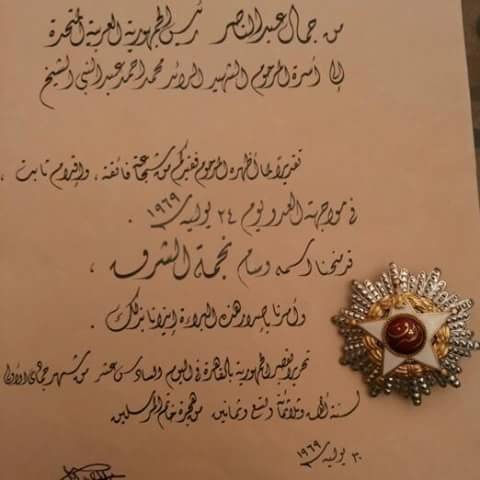 من جمال عبد الناصر رئيس الجمهورية العربية المتحدة
إلى أسرة المرحوم الشهيد الرائد محمد أحمد عبد النبي الشيخ
تقديرًا لما أظهره المرحوم فقيدكم من شجاعة فائقة، وإقدام ثابت،
في مواجهة العدو يوم ٢٤ يوليه ١٩٦٩.
قد منحنا اسمه وسام نجمة الشرف،
وأمرنا بإصدار هذه البراءة إيذانا بذلك.
تحريرًا بقصر الجمهورية بالقاهرة في اليوم السادس عشر من شهر جمادى الأولى
لسنة ألف وثلاثمائة وتسع وثمانين من هجرة خاتم المرسلين
٣٠ يوليه ١٩٦٩